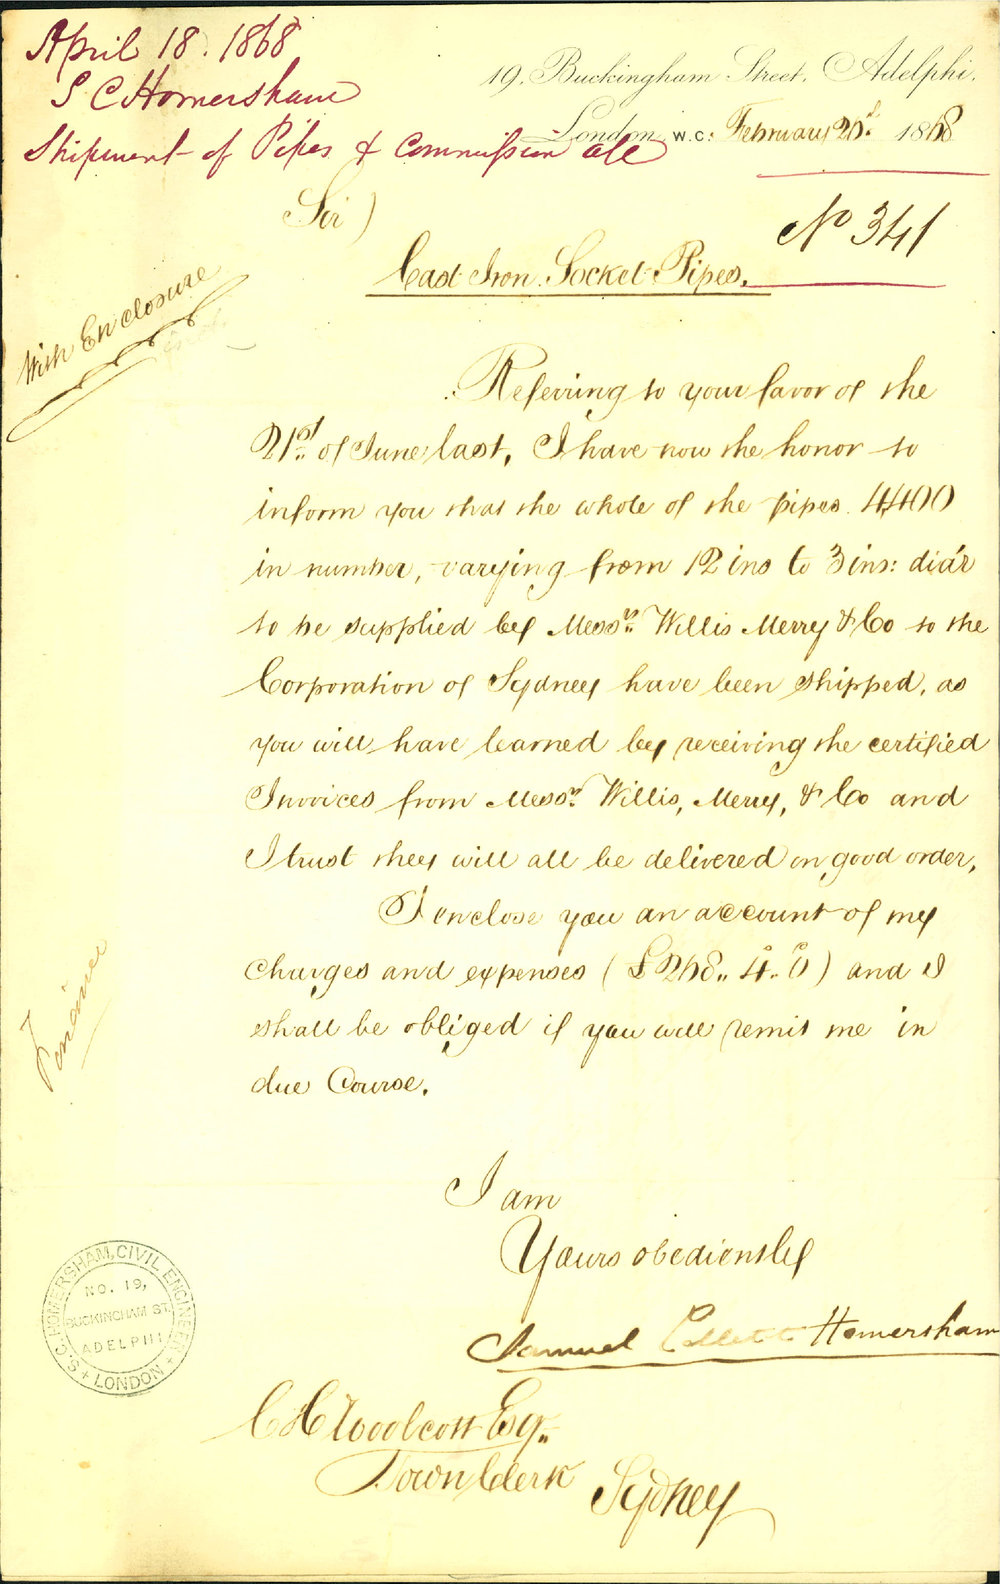 April 18. 1868
S C Homersham
Shipment of Pipes & Commission a/c
19, Buckingham Street, Adelphi,
London, W.C: February 20th 1868
No 341
Sir)
Cast Iron Socket Pipes.
With Enclosure
Referring to your favor of the
21st of June last, I have now the honor to
inform you that the whole of the pipes 4400
in number, varying from 12 ins to 3 ins: dia'r
to be supplied by Messrs Willis Merry & Co to the
Corporation of Sydney have been shipped, as
you will have learned by receiving the certified
Invoices from Messrs Willis, Merry, & Co and
I trust they will all be delivered in good order,
I enclose you an account of my
charges and expenses (£268.. 4.. 0) and I
shall be obliged if you will remit me in
due Course.
Finance
I am
Yours obediently
Samuel Collett Homersham
S.C. HOMERSHAM, CIVIL ENGINEER
+ LONDON +
NO. 19,
BUCKINGHAM ST.
ADELPHI
C H Woolcott Esq..
Town Clerk
Sydney